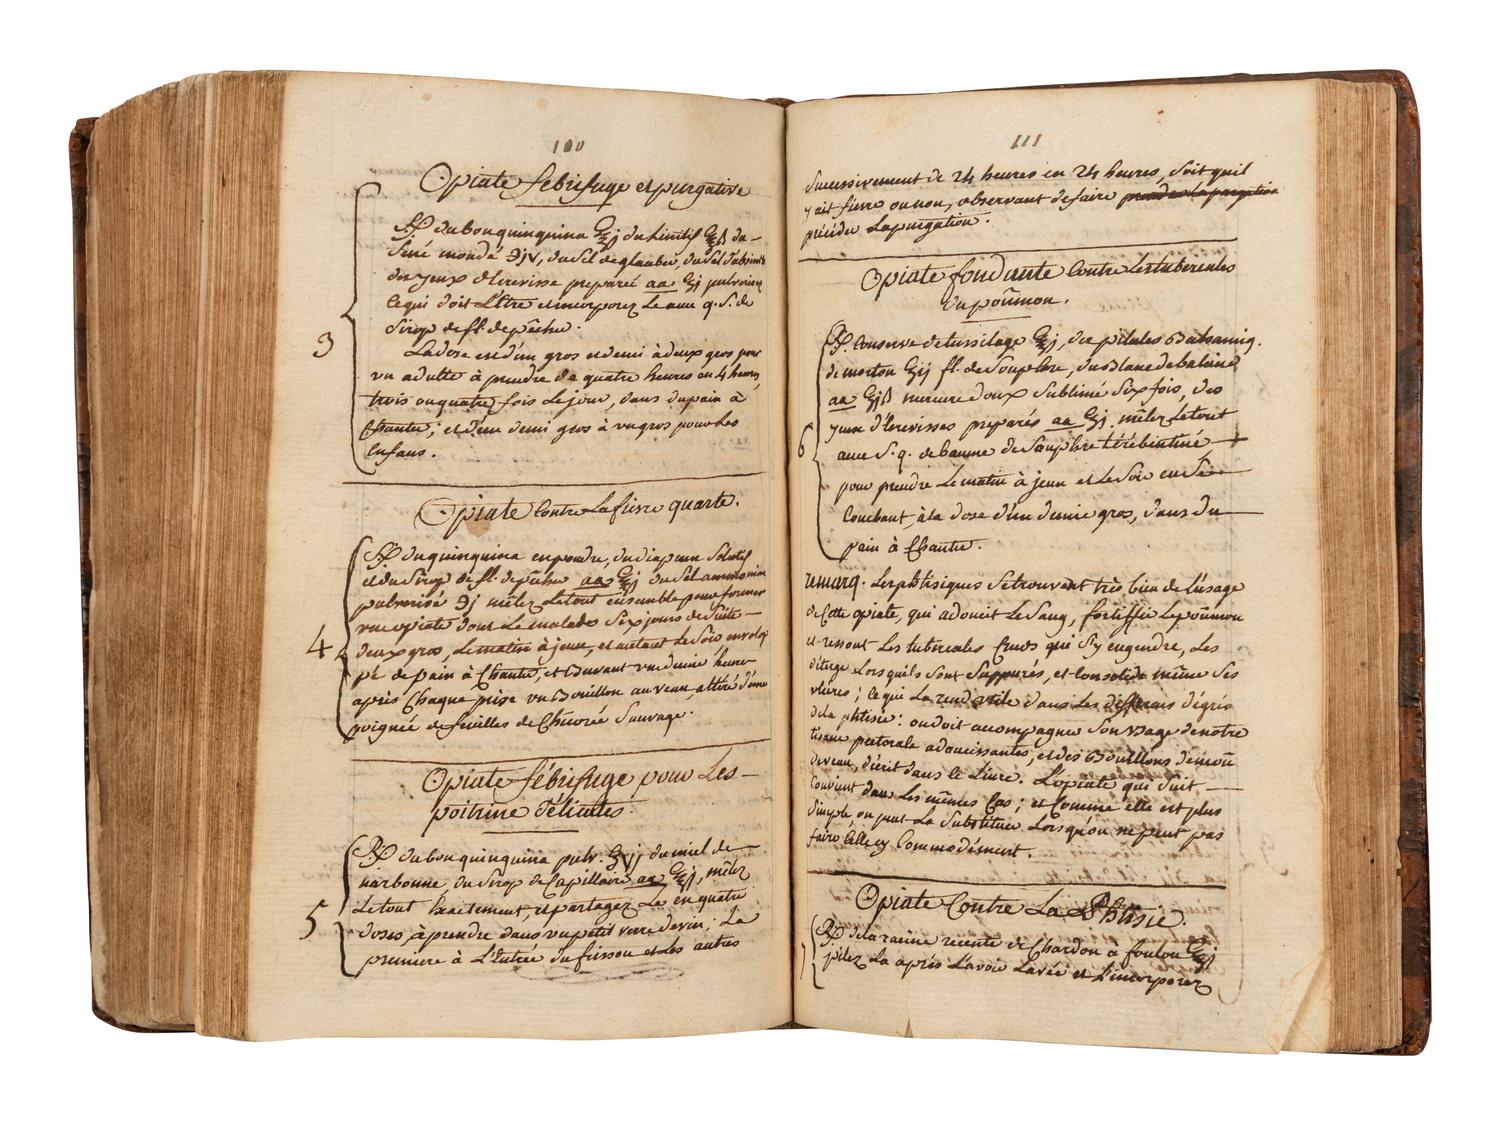 110
Opiate fébrifuge et purgative
3
℞ du bon quinquina ℥j du Lénitif ℥ß du
Séné mondé ʒjv, du sel de glauber, du sel d'absinte
des yeux d'Ecrevisse preparé aa ʒj pulverisez
ce qui doit L'Etre et incorporez Le avec q. S. de
Sirop de fl. de pêcher.
La dose est d'un gros et demi à deux gros pour
un adulte à prendre de quatre heures en 4 heures,
trois ou quatre fois Le jour, dans du pain à
Chanter; et d'un demi gros à un gros pour Les
Enfans.
Opiate Contre La fievre quarte.
4
℞ du quinquina en poudre, du diaprun Solutif
et du Sirop de fl. de pêcher aa ℥j du Sel ammoniac
pulverisé ʒj mêlez Le tout ensemble pour former
une opiate dont Le malade Six jours de Suite
deux gros, Le matin à jeun, et autant Le Soir envelop
pé de pain à Chanter, et Buvant une demie heure
après Chaque prise un Bouillon au veau, altéré d'une
poignée de feuilles de Chicorée Sauvage.
Opiate fébrifuge pour Les
poitrine délicates.
5
℞ du bon quinquina pulv. ʒvj du miel de
narbonne, du Sirop de Capillaire aa ℥ß, mêlez
Le tout Exactement, et partagez Le en quatre
doses, à prendre dans un petit verre de vin; La
premiere à L'Entrée du frisson et Les autres
111
Successivement de 24 heures en 24 heures, Soit qu'il
y ait fievre ou non, observant de faire prendre la purgation
précéder La purgation.
Opiate fondante Contre Les tubercules
du poûmon.
6
℞. Conserve de tussilage ℥j, des pilules Balsamiq.
de morton ʒij fl. de Souphre, du Blanc de baleine
aa ʒjß mercure doux Sublimé Six fois, des
yeux d'Ecrevisses preparés aa ʒj. mêlez Le tout
avec S. q. de baume de Souphre térébintiné
pour prendre Le matin à jeun et Le Soir en Se
Couchant, à la dose d'un demie gros, dans du
pain à Chanter.
remarq. Les phtisiques Se trouvent très bien de L'usage
de Cette opiate, qui adoucit Le Sang, fortiffie Le poûmon
et resout Les tubercules Cruds qui S'y engendre, Les
déterge Lorsqu'ils Sont Suppurés, et Consolide même Ses
ulceres; ce qui La rend utile dans Les différens dégrés
de la phtisie: on doit accompagner Son usage de notre
tisane pectorale adoucissante, et des Bouillons de mou
de veau, décrit dans le Livre. L'opiate qui Suit
Convient dans Les mêmes Cas; et Comme elle est plus
Simple, on peut La Substituer Lorsqu'on ne peut pas
faire Celle cy Commodément.
Opiate Contre La Phtisie.
7
℞ de la racine recente de Chardon à foulon ℥ß
pilez La après L'avoir Lavée et L'incorporez